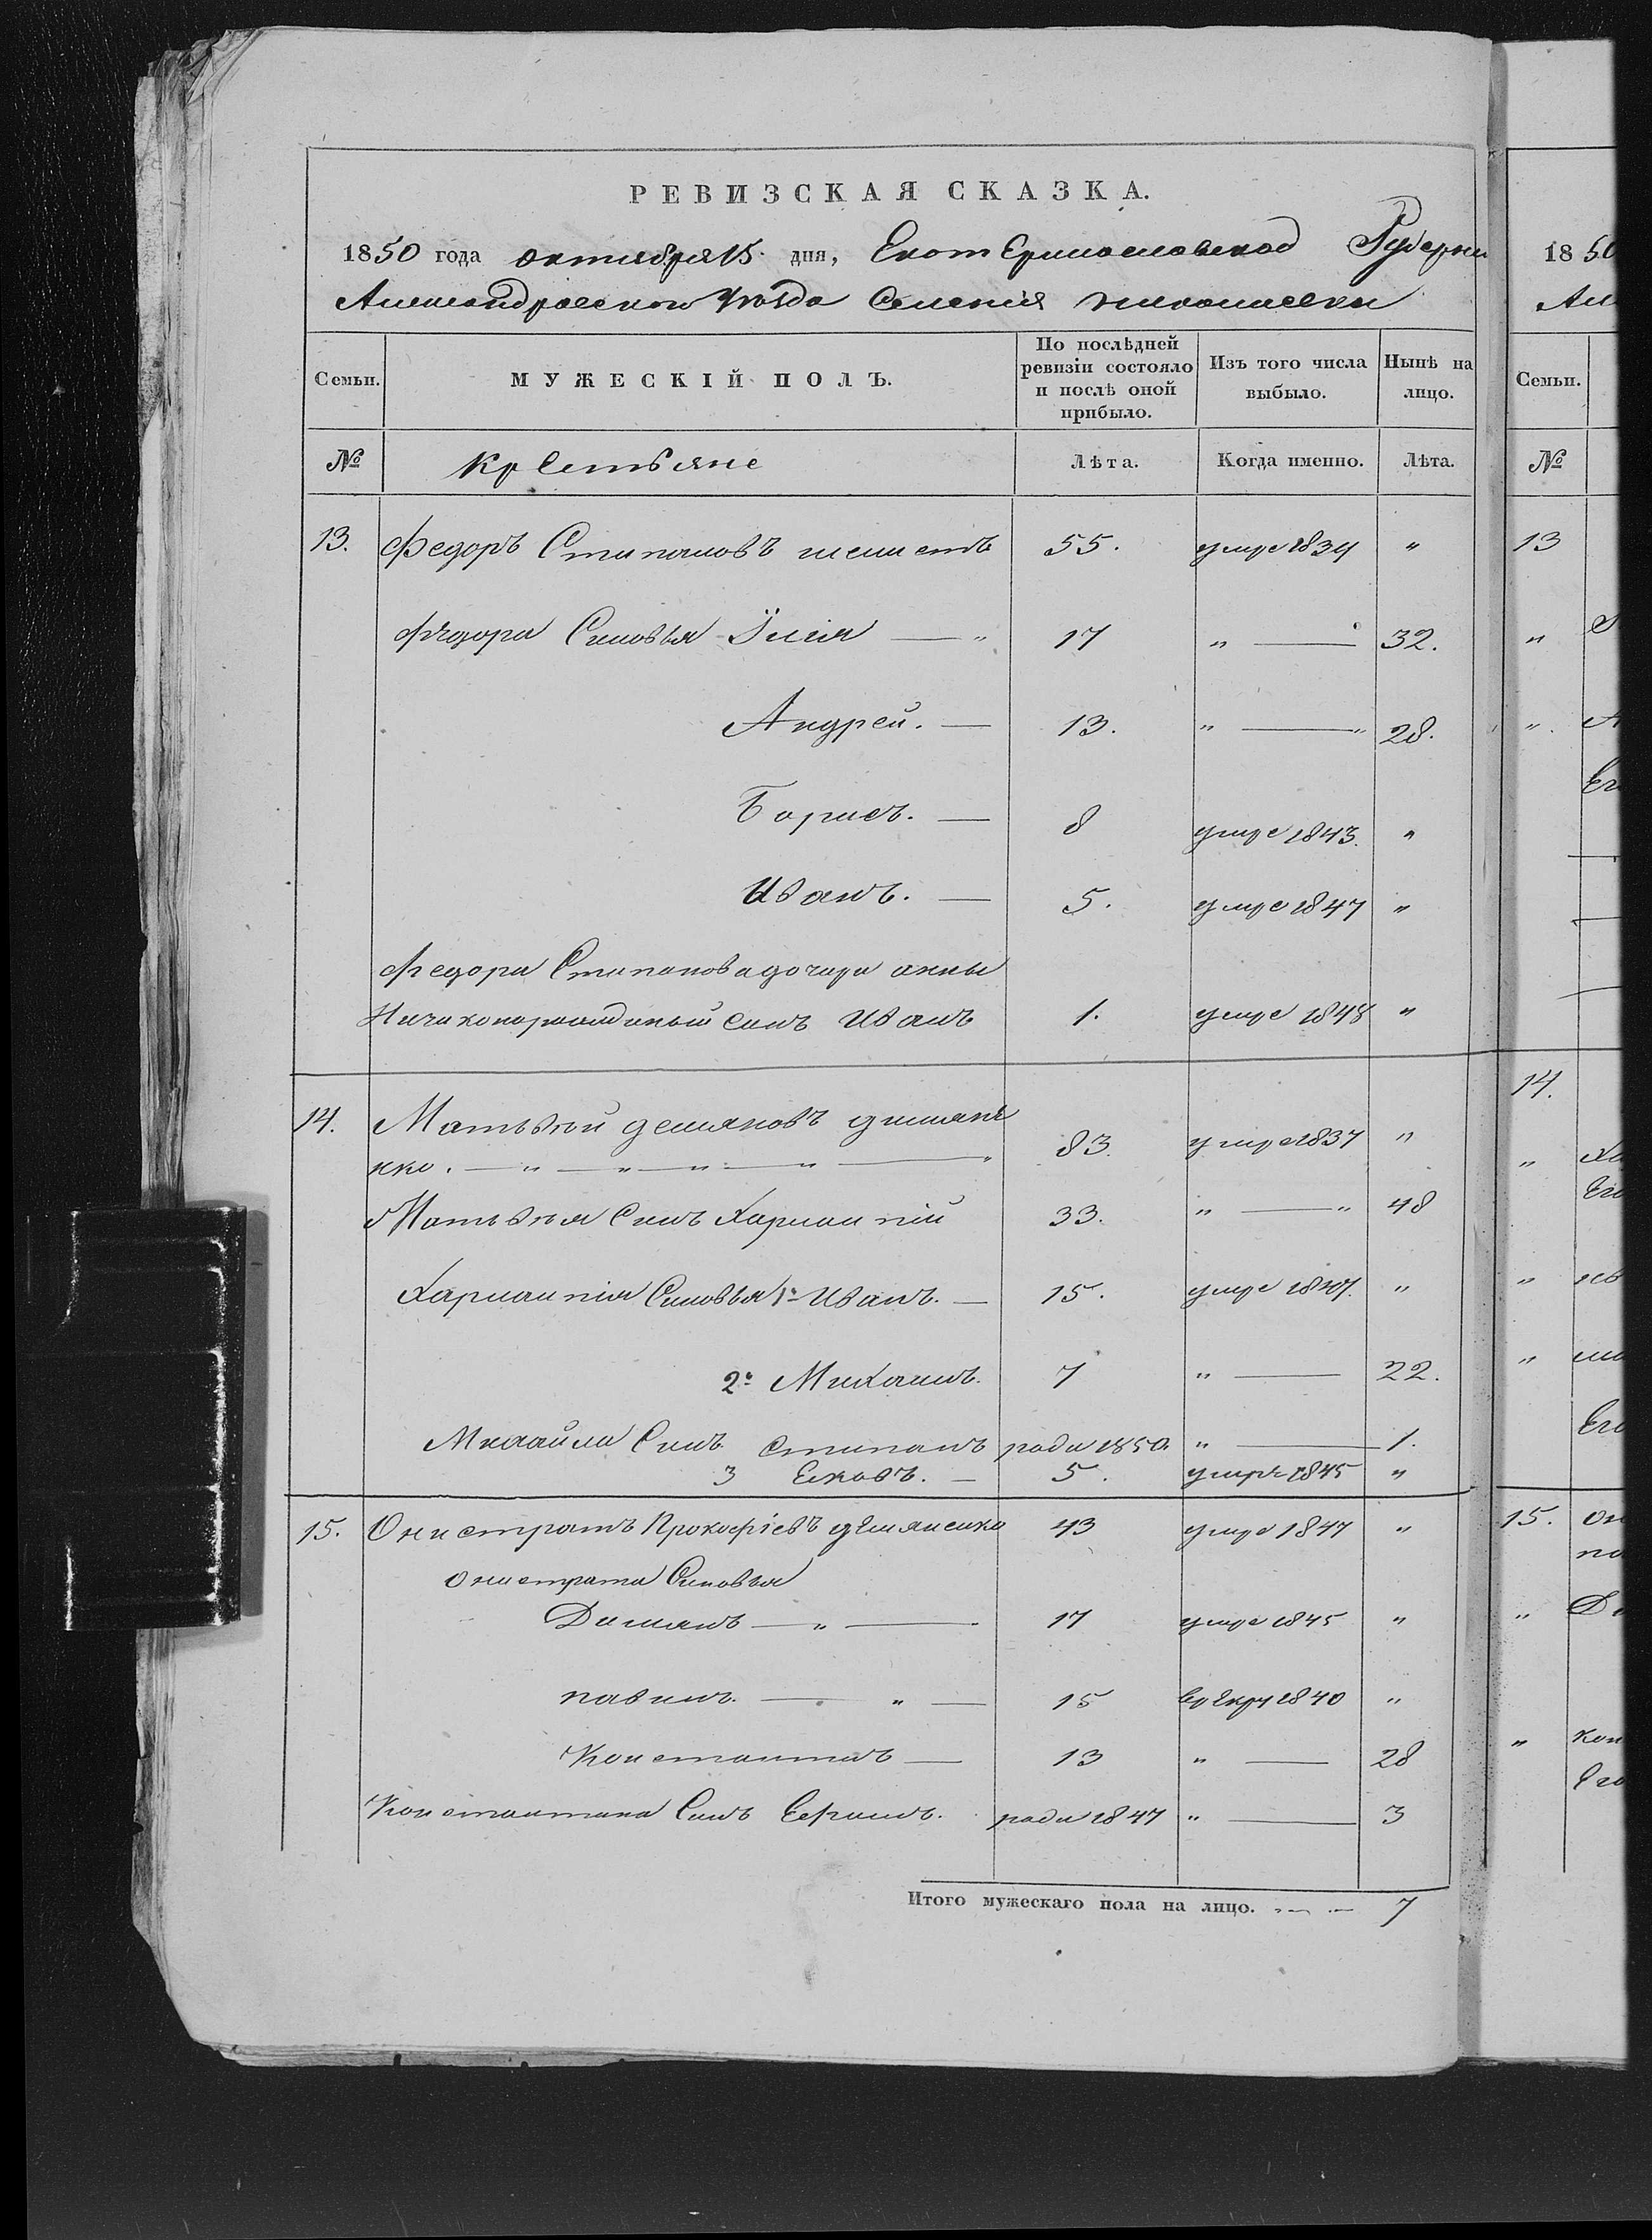 РЕВИЗСКАЯ СКАЗКА.
1850 года октября 15 дня, Екотєринославской Губерни
Алєксандровского уѣзда Селения николаевки
Семьи. МУЖЕСКІЙ ПОЛЪ. По послѣдней ревизіи состояло и послѣ оной прибыло. Изъ того числа выбыло. Нынѣ на лицо.
№ Крестьяне Лѣта. Когда именно. Лѣта.
13. Федоръ Стипановъ 55. умре 1834 "
Федора Синовья Илия — " 17 " — 32.
Андрей. — 13. " — " 28.
Борисъ. — 8 умре 1843. "
Иванъ. — 5. умре 1847 "
Федора Степанова дочери анны
синъ Иванъ 1. умре 1848 "
14. Матьвѣй демяновъ димяне
нко. — " — " — " — " — " 83. умре 1837 "
Матьвѣя Синъ Харлампій 33. " — " 48
Харлампія Синовья 1й Иванъ. — 15. умре "
2й Михаилъ. 7 " — 22.
Михайла Синъ Стипанъ роди 1850. " — 1.
3 Яковъ. — 5. умре 1845 "
15. Онистратъ Прокофіевъ дємяненко 43 умре 1847 "
Онистрата Синовья
Димянъ — " — 17 умре 1845 "
павилъ. — " — 15 рекру 1840 "
Константинъ — 13 " — 28
Константина Синъ Ефримъ. роди 1847 " — 3
Итого мужескаго пола на лицо. — 7
1850
Ал
Семьи.
№
13
"
" А
Ег
14.
" Ха
Его
"
"
Его
15. он
" Ди
" кон
Его